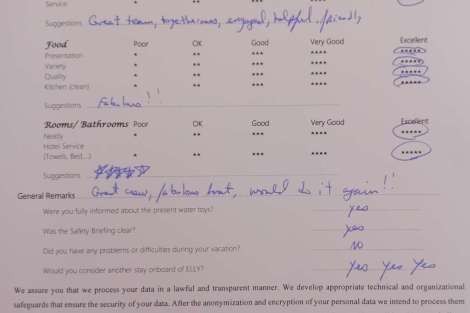 Service * ** *** **** *****
Suggestions Great team, togetherness, engaged, helpful, friendly
Food Poor OK Good Very Good Excellent
Presentation * ** *** **** *****
Variety * ** *** **** *****
Quality * ** *** **** *****
Kitchen (clean) * ** *** **** *****
Suggestions Fabulous!!
Rooms/ Bathrooms Poor OK Good Very Good Excellent
Neatly * ** *** **** *****
Hotel Service
(Towels, Bed...) * ** *** **** *****
Suggestions
General Remarks Great crew, fabulous boat, would do it again!!
Were you fully informed about the present water toys? yes
Was the Safety Briefing clear? yes
Did you have any problems or difficulties during your vacation? NO
Would you consider another stay onboard of ELLY? Yes Yes Yes
We assure you that we process your data in a lawful and transparent manner. We develop appropriate technical and organizational
safeguards that ensure the security of your data. After the anonymization and encryption of your personal data we intend to process them